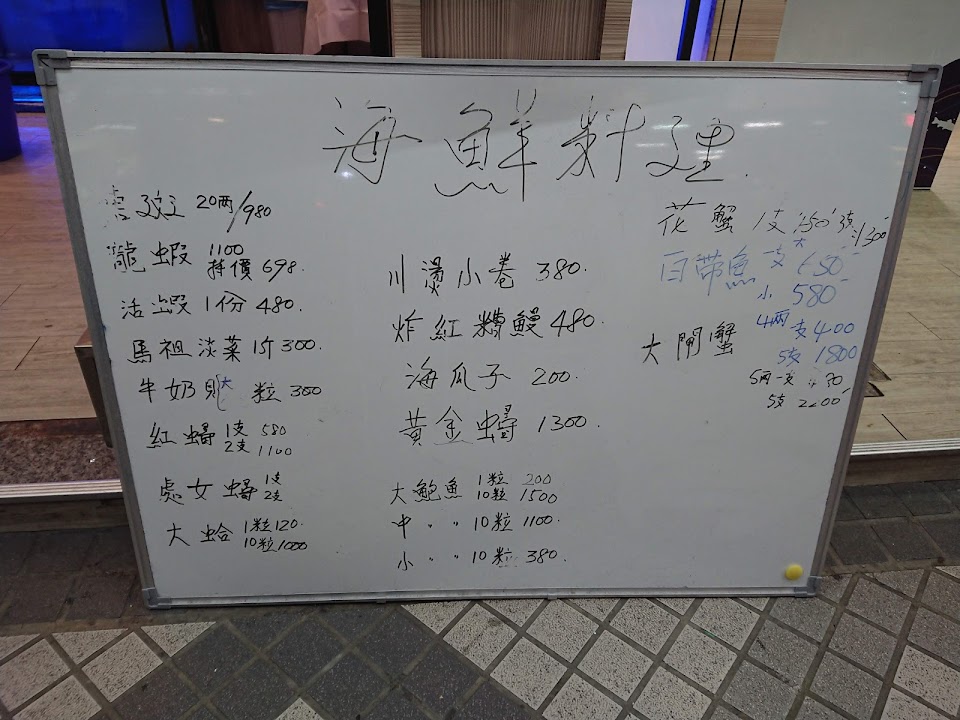 海鮮料理.
20兩/980
龍蝦 1100
特價 698.
活蝦 1份 480.
馬祖淡菜 1斤 300.
牛奶貝 大 粒 300
紅蟳 1支 580
2支 1100
處女蟳 1支
2支
大蛤 1粒 120.
10粒 1000
川燙小卷 380.
炸紅糟鰻 480.
海瓜子 200.
黃金蟳 1300.
大鮑魚 1粒 200
10粒 1500
中〃〃 10粒 1100.
小〃〃 10粒 380.
花蟹 1支 350 1300
白帶魚 大支 650
小 580
大閘蟹 4兩支 400
5支 1800
5兩一支
5支 2200